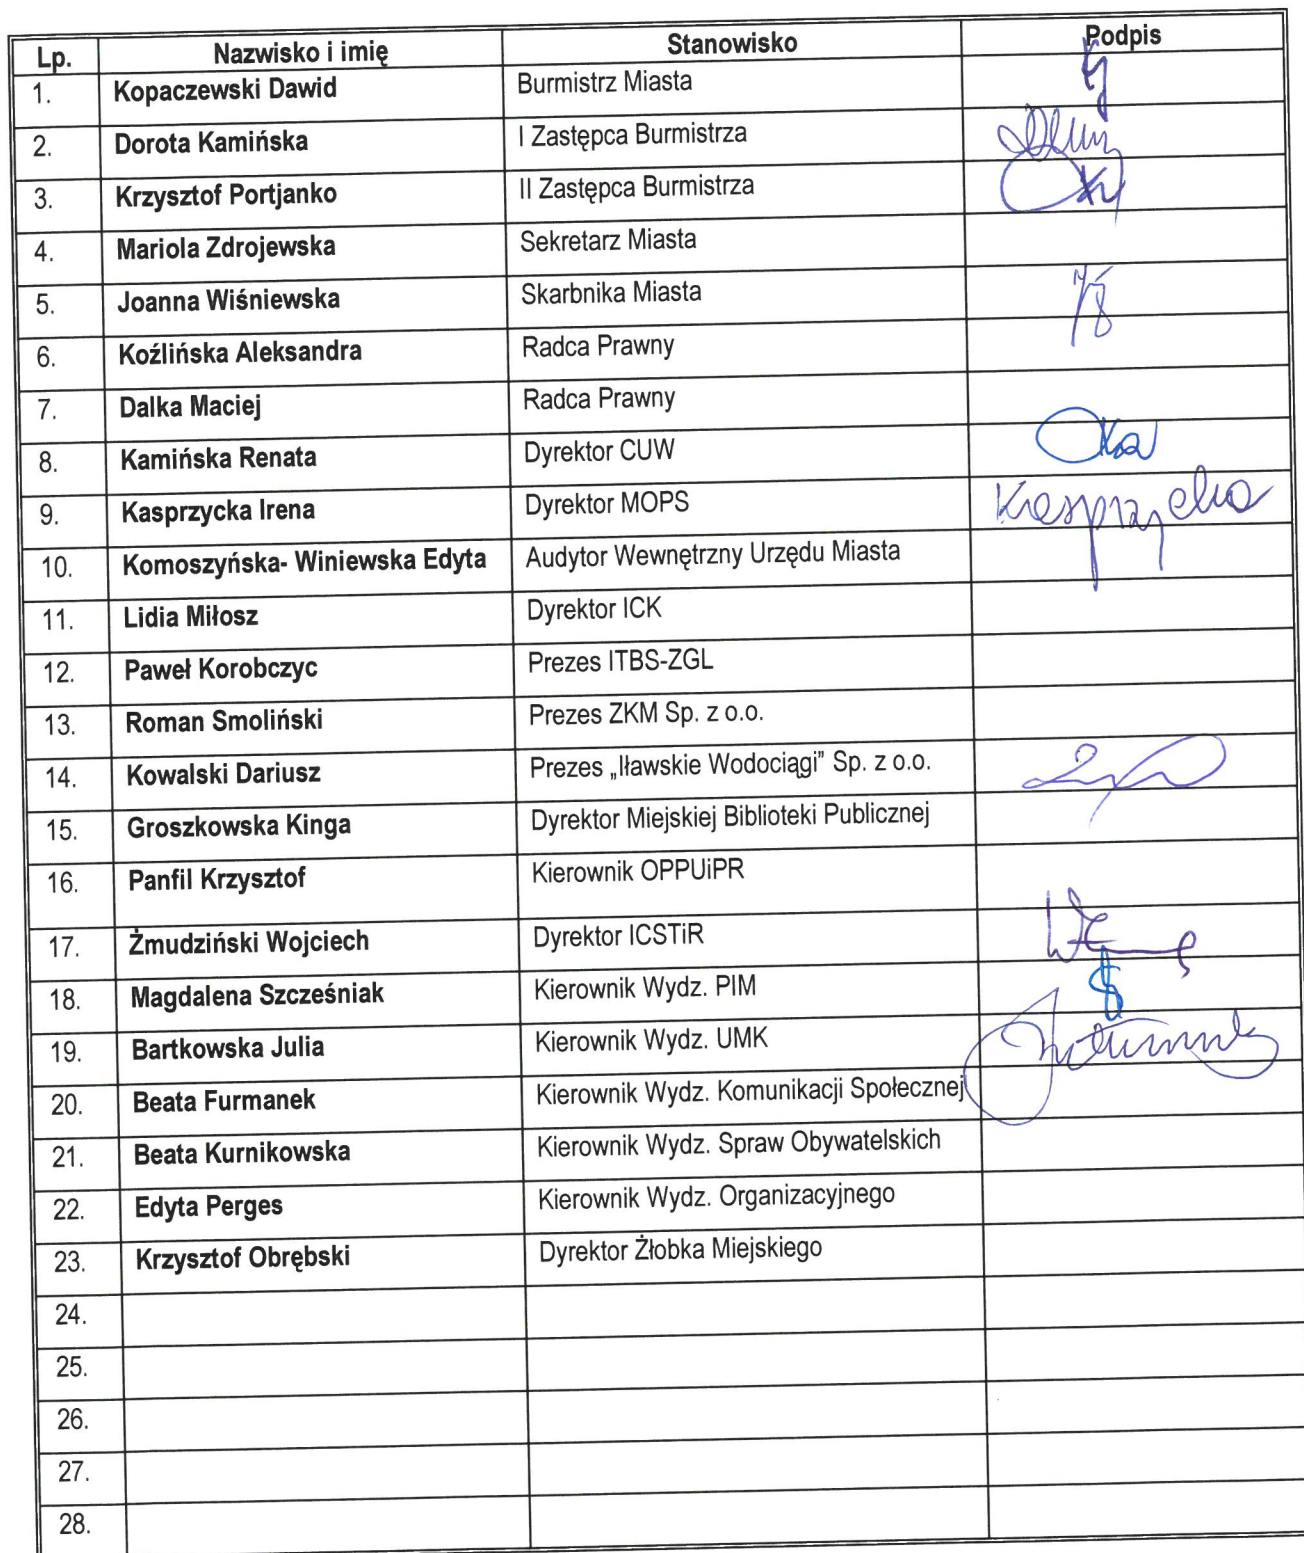 Lp. Nazwisko i imię Stanowisko Podpis
1. Kopaczewski Dawid Burmistrz Miasta
2. Dorota Kamińska I Zastępca Burmistrza
3. Krzysztof Portjanko II Zastępca Burmistrza
4. Mariola Zdrojewska Sekretarz Miasta
5. Joanna Wiśniewska Skarbnika Miasta
6. Koźlińska Aleksandra Radca Prawny
7. Dalka Maciej Radca Prawny
8. Kamińska Renata Dyrektor CUW
9. Kasprzycka Irena Dyrektor MOPS Kasprzycka
10. Komoszyńska- Winiewska Edyta Audytor Wewnętrzny Urzędu Miasta
11. Lidia Miłosz Dyrektor ICK
12. Paweł Korobczyc Prezes ITBS-ZGL
13. Roman Smoliński Prezes ZKM Sp. z o.o.
14. Kowalski Dariusz Prezes „Iławskie Wodociągi” Sp. z o.o.
15. Groszkowska Kinga Dyrektor Miejskiej Biblioteki Publicznej
16. Panfil Krzysztof Kierownik OPPUiPR
17. Żmudziński Wojciech Dyrektor ICSTiR
18. Magdalena Szcześniak Kierownik Wydz. PIM
19. Bartkowska Julia Kierownik Wydz. UMK
20. Beata Furmanek Kierownik Wydz. Komunikacji Społecznej
21. Beata Kurnikowska Kierownik Wydz. Spraw Obywatelskich
22. Edyta Perges Kierownik Wydz. Organizacyjnego
23. Krzysztof Obrębski Dyrektor Żłobka Miejskiego
24.
25.
26.
27.
28.